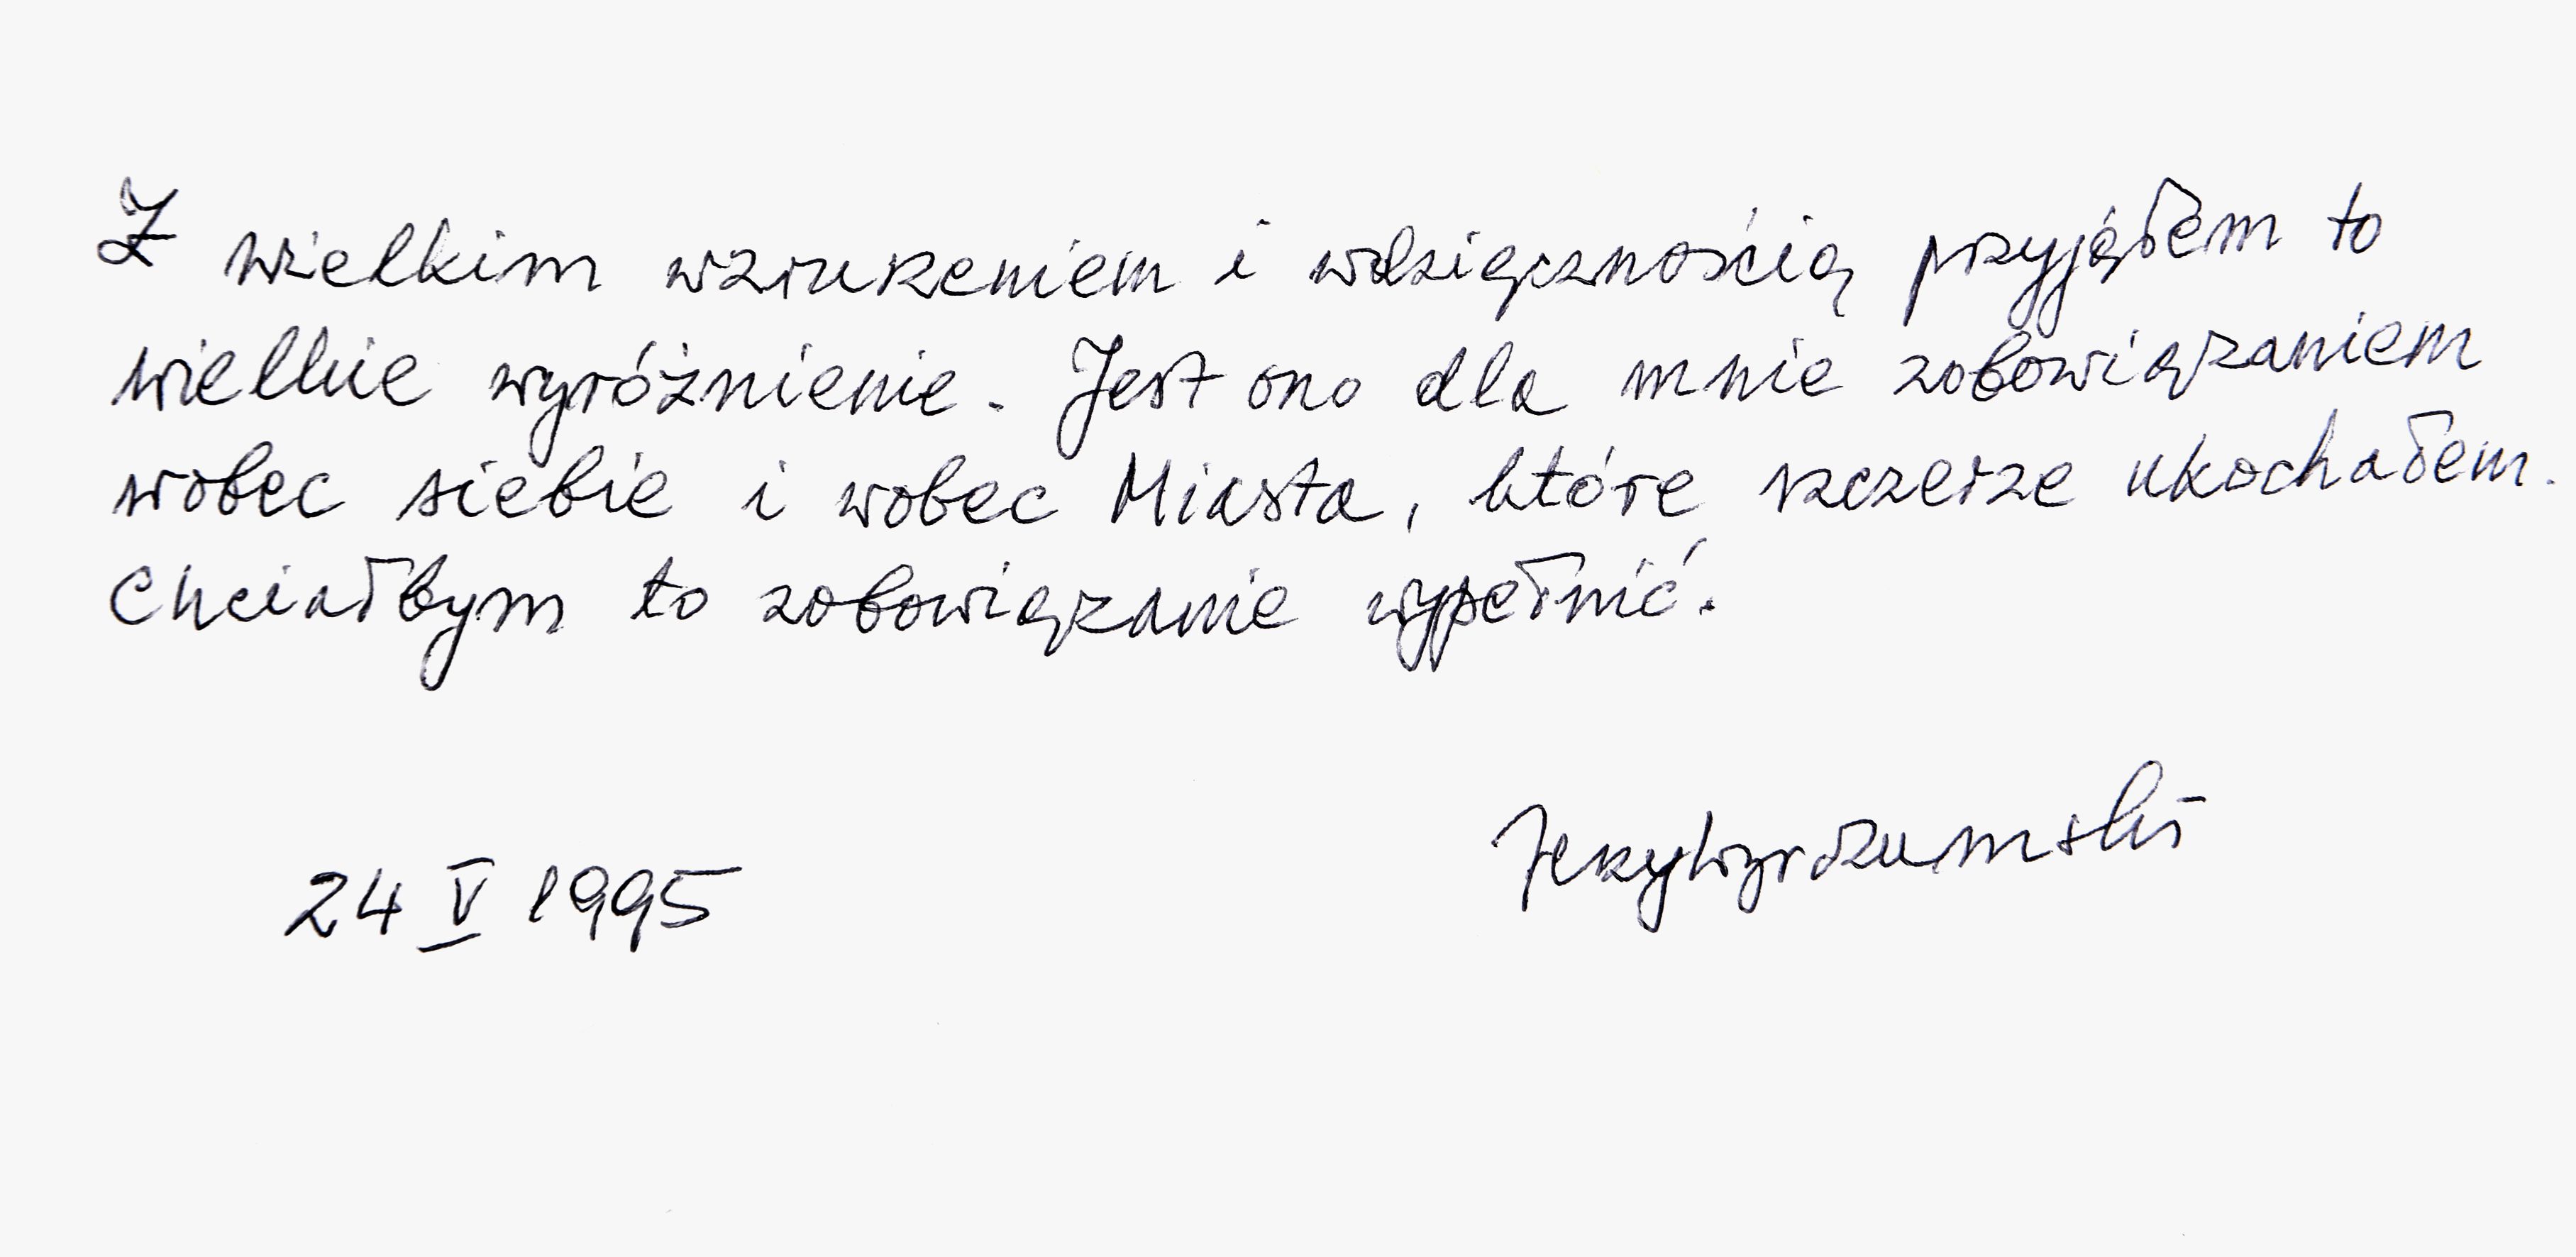 Z wielkim wzruszeniem i wdzięcznością przyjąłem to
wielkie wyróżnienie. Jest ono dla mnie zobowiązaniem
wobec siebie i wobec Miasta, które szczerze ukochałem.
Chciałbym to zobowiązanie wypełnić.
Jerzy Wyrozumski
24 V 1995